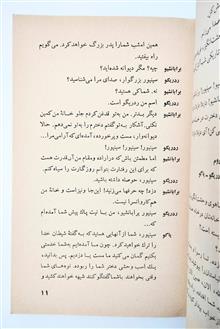 همین امشب شمارا پدر بزرگ خواهد کرد. می‌گویم
راه بیفتید.
برابانشیو چه؟ مگر دیوانه شده‌اید؟
رودریگو سینیور بزرگوار، صدای مرا می‌شناسید؟
برابانشیو نه. شماکی هستید؟
رودریگو اسم من رودریگو است.
برابانشیو دیگر بدتر. من بتو قدغن کردم جلو خانهٔ من کمین
نکنی. آشکار به تو گفتم دخترم را به تو نمی‌دهم. حالا
دیوانه‌وار، مست و پرخورده، آمده‌ای که آرامی مرا...
رودریگو سینیور! سینیور! سینیور!
برابانشیو اما مطمئن باش که در اراده و مقام من آن قدرت هست
که برای این رفتارت بتوانم روزگارت را سیاه کنم.
رودریگو سینیور، حوصله داشته باشید.
برابانشیو دزد؟ چه حرفها می‌زنید! این‌جا ونیز است و خانهٔ من
هم کاروانسرا نیست.
رودریگو سینیور برابانشیو، من با نیت پاک پیش شما آمده‌ام
یاگو شما هم از آنهایی هستید که به گفتهٔ شیطان خدا
را ترک خواهید کرد. چون ما آمده‌ایم به شما خدمتی
بکنیم گمان می‌کنید ما مست یا دزدیم. پس بدانید،
یک اسب وحشی دختر شما را بوده. نوه‌های شما
وقتی بخواهند با شما گفتگو کنند شیهه خواهند کشید و
۱۱